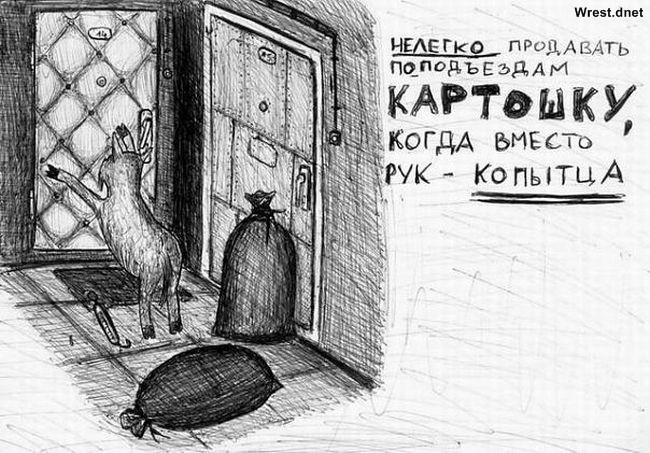 Wrest.dnet
НЕЛЕГКО ПРОДАВАТЬ
ПО ПОДЪЕЗДАМ
КАРТОШКУ,
КОГДА ВМЕСТО
РУК - КОПЫТЦА
14